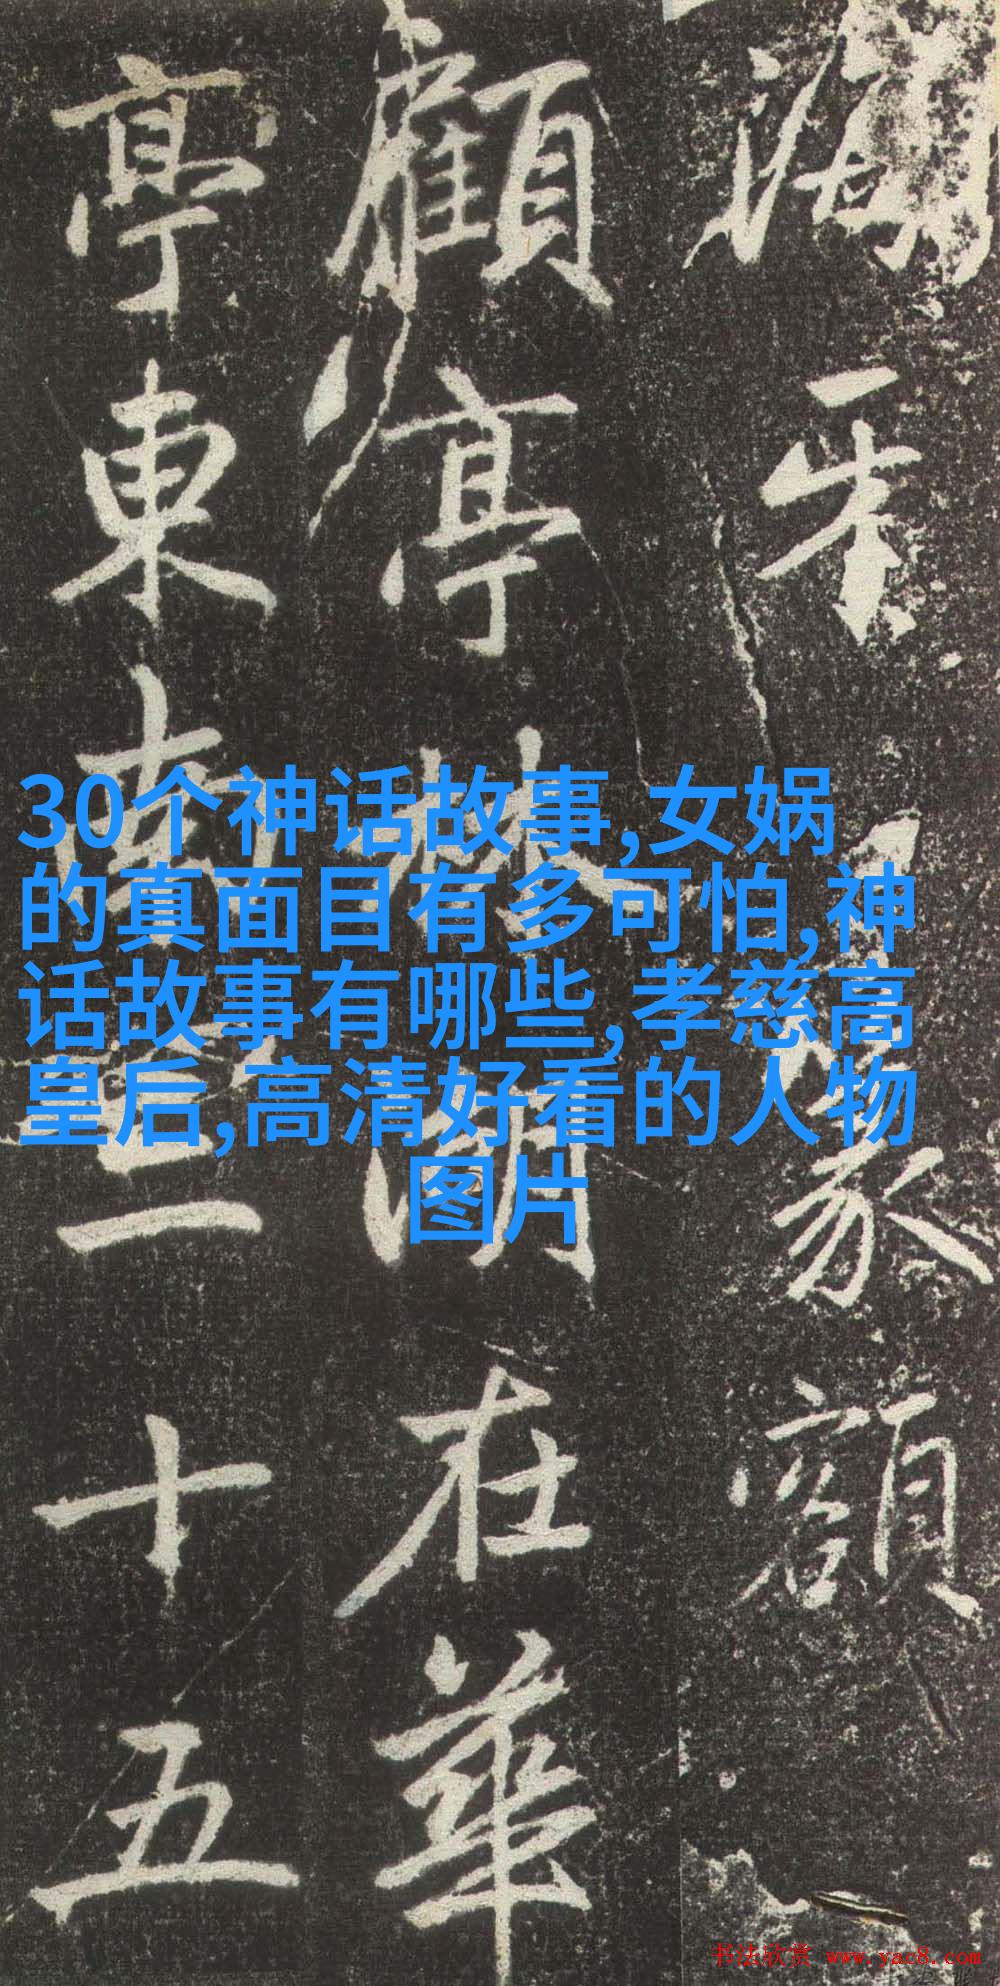 30个神话故事,女娲
的真面目有多可怕,神
话故事有哪些,孝慈高
皇后,高清好看的人物
图片
篆額
顧亭林湖在華
亭東南三十五
书法欣赏 www.yac8.com